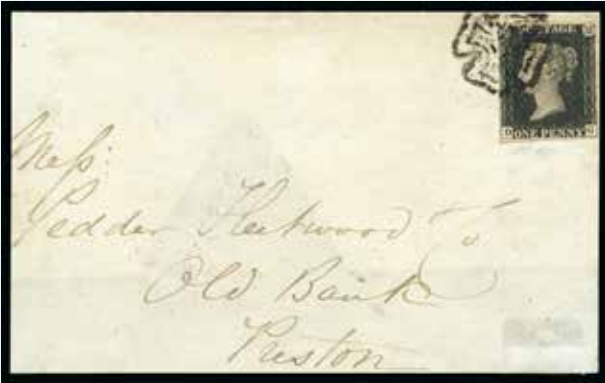 POSTAGE
ONE PENNY
Mess:
Pedder Fleetwood & Co
Old Bank
Preston